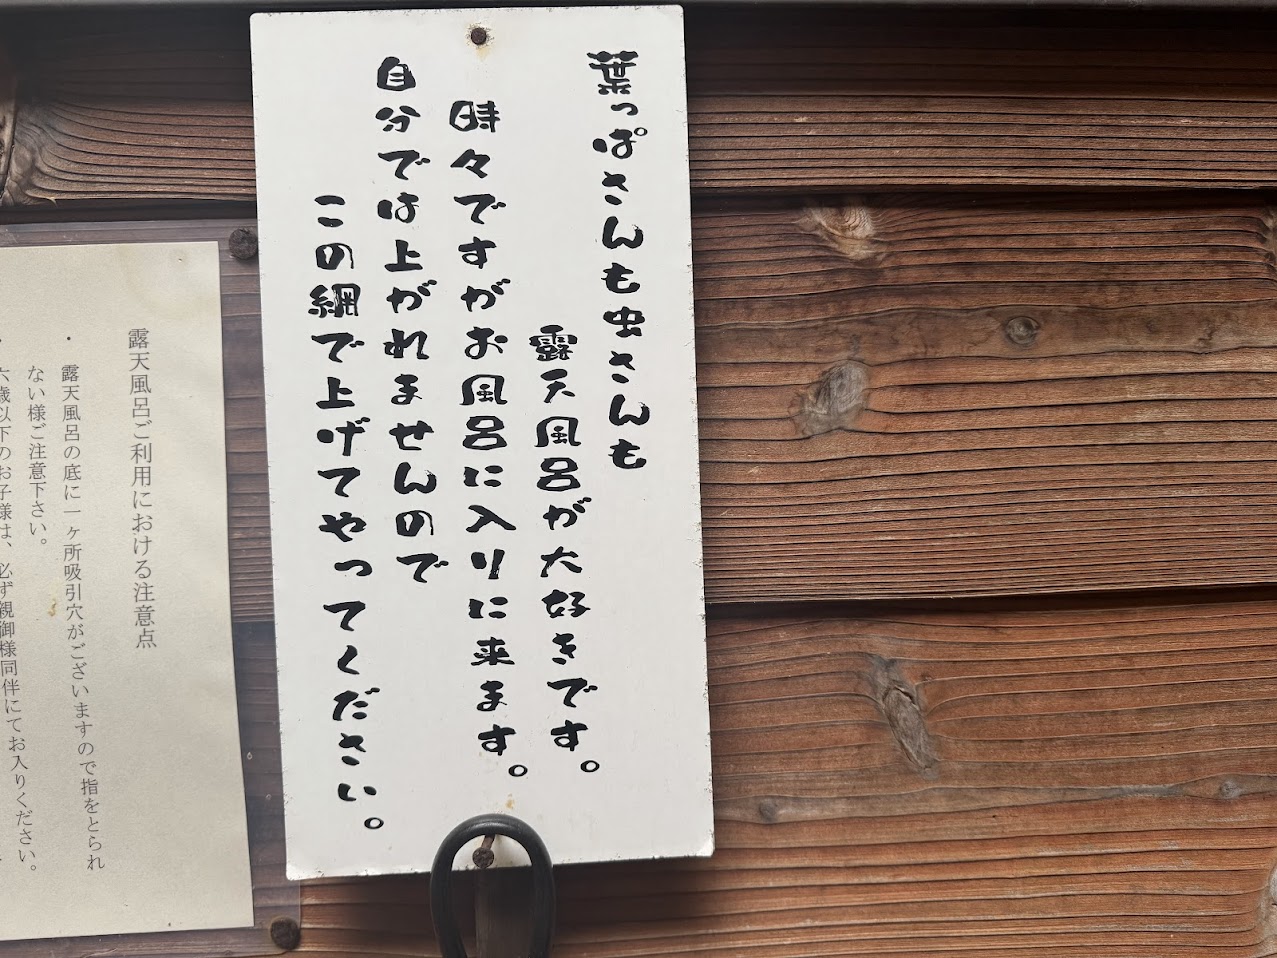 葉っぱさんも虫さんも
露天風呂が大好きです。
時々ですがお風呂に入りに来ます。
自分では上がれませんので
この網で上げてやってください。
露天風呂ご利用における注意点
・露天風呂の底に一ヶ所吸引穴がございますので指をとられ
ない様ご注意下さい。
・六歳以下のお子様は、必ず親御様同伴にてお入りください。